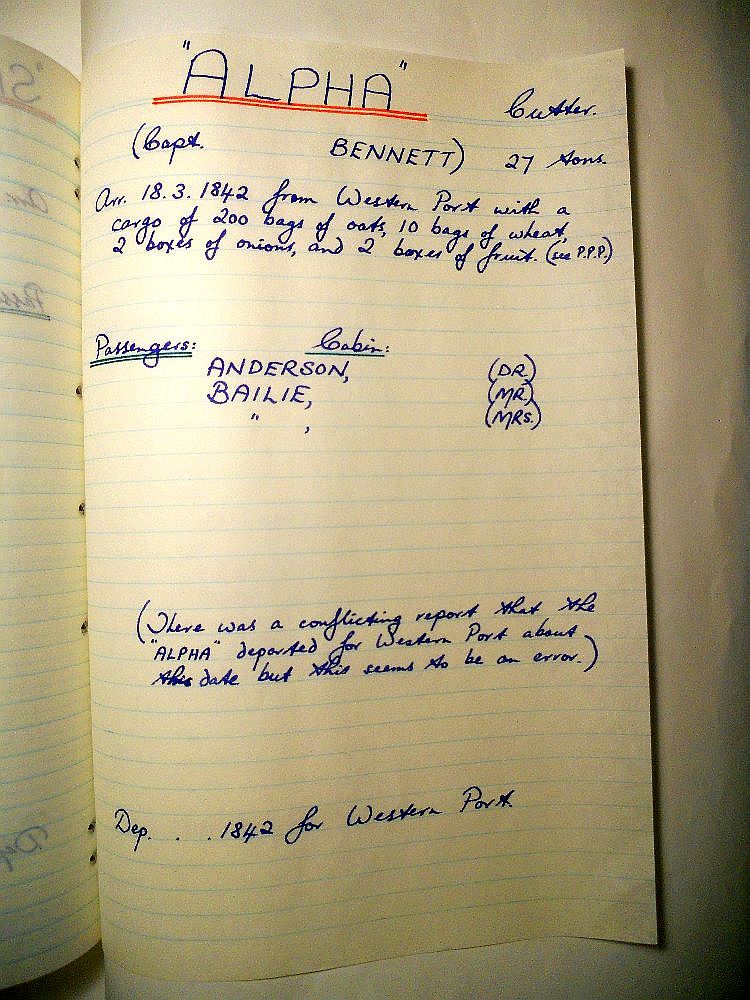 "ALPHA"
Cutter.
(Capt. BENNETT) 27 tons.
Arr. 18.3.1842 from Western Port with a
cargo of 200 bags of oats, 10 bags of wheat,
2 boxes of onions, and 2 boxes of fruit. (see P.P.P.)
Passengers: Cabin:
ANDERSON, (DR.)
BAILIE, (MR.)
" , (MRS.)
(There was a conflicting report that the
"ALPHA" departed for Western Port about
this date but this seems to be an error.)
Dep. . . 1842 for Western Port.